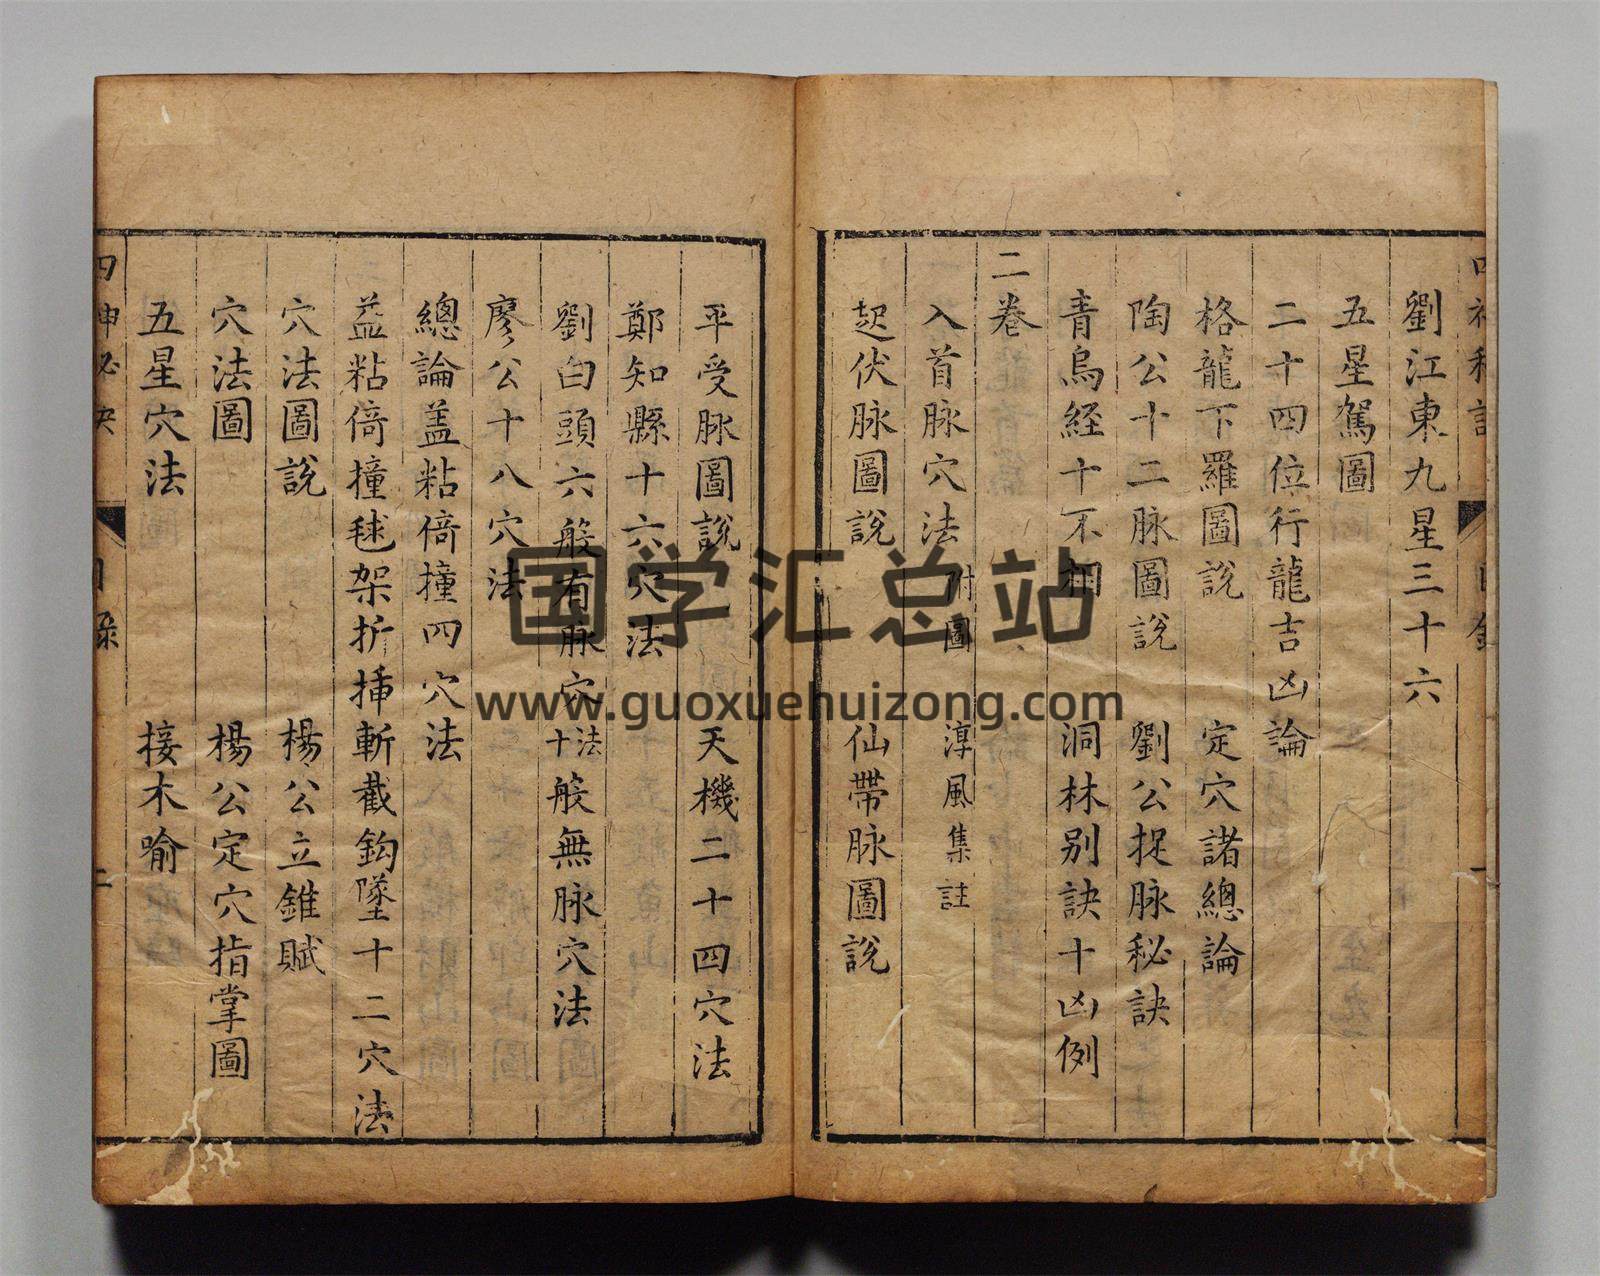 劉江東九星三十六
五星駕圖
二十四位行龍吉凶論
格龍下羅圖說 定穴諸總論
陶公十二脉圖說 劉公捉脉秘訣
青烏経十不相 洞林别訣十凶例
二卷
入首脉穴法 附圖 淳風集註
起伏脉圖說 仙帶脉圖說
平受脉圖說 天機二十四穴法
鄭知縣十六穴法
劉白頭六般有脉穴法 十般無脉穴法
廖公十八穴法
總論盖粘倚撞四穴法
盖粘倚撞毬架折挿斬截鈎墜十二穴法
穴法圖說 楊公立錐賦
穴法圖 楊公定穴指掌圖
五星穴法 接木喻
目錄
国学汇总站
www.guoxuehuizong.com